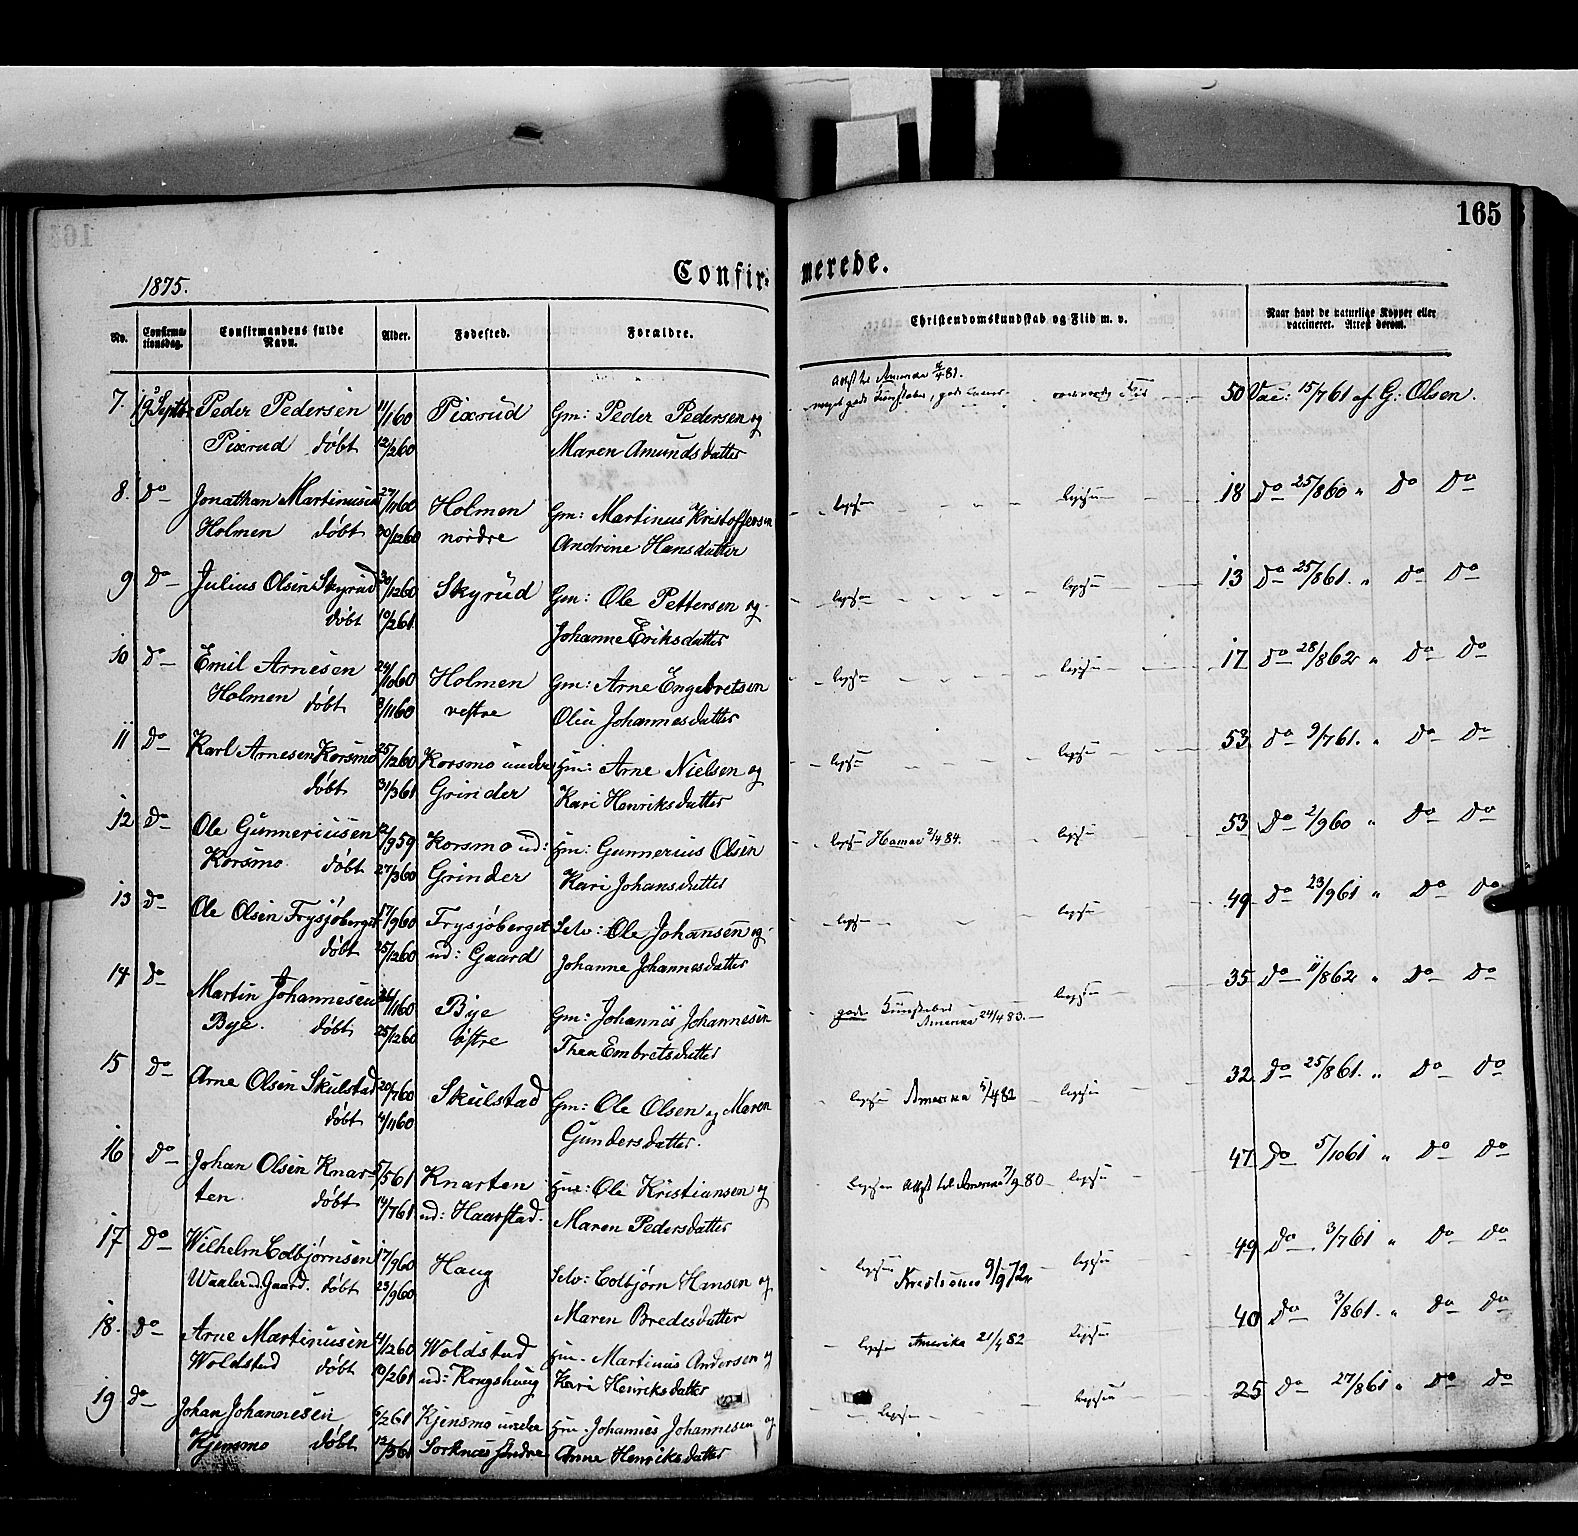 165
1875.
Confir- merede.
No. Confirma-tionsdag. Confirmandens fulde Navn. Alder. Fødested. Forældre. Christendomskundskab og Flid m. v. Naar havt de naturlige Kopper eller vaccineret. Attest derom.
7. 19 Septbr Peder Pedersen 11/1 60 Pixrud Gm: Peder Pedersen og
Attest til Amerika 81.
meget gode Kundskaber, 50 Vac: 15/7 61 af G: Olsen.
Pixrud døbt 12/2 60 Maren Amundsdatter
8. Do Jonathan Martinusen 27/11 60 Holmen Gm: Martinus Kristoffersen 18 Do 25/8 60 " Do Do
Holmen døbt 30/12 60 nordre Andrine Hansdatter
9 Do Julius Olsen Skyrud 30/12 60 Skyrud Gm: Ole Pettersen og 13 Do 25/8 61. " Do Do
døbt 10/2 61 Johanne Eriksdatter
10 Do Emil Arnesen 24/10 60 Holmen Gm: Arne Engebretsen 17 Do 28/8 62 " Do Do
Holmen døbt /11 60 vestre Olia Johannesdatter
11 Do Karl Arnesen Korsmo 25/12 60 Korsmo under Hm: Arne Nielsen og 53. Do 9/7 61. " Do Do
døbt 31/3 61 Grinder Kari Henriksdatter
12 Do Ole Gunneriusen 12/9 59 Korsmo ud: Hm: Gunnerius Olsen Hamar 2/4 84. 53 Do 2/9 60 " Do Do
Korsmo. døbt 27/3 60 Grinder Kari Johansdatter
13 Do Ole Olsen Frysjøberget 17/9 60 Frysjøberget Selv: Ole Johansen og 49 Do 23/9 61 " Do Do
døbt 25/12 60 ud: Gaard Johanne Johannesdatter
14 Do Martin Johannesen /11 60 Bye Gm: Johannes Johannesen gode Kundskaber 35 Do 11/8 62 " Do Do
Amerika 24/4 83.
Bye. døbt 25/12 60 østre Thea Embretsdatter
15 Do Arne Olsen Skulstad 20/7 60 Skulstad Gm: Ole Olsen og Maren Amerika /4 82 32 Do 25/8 61. " Do Do
døbt 4/11 60 Gundersdatter.
16 Do Johan Olsen Knar- 5/5 61 Knarten Hm: Ole Kristiansen og Attest til Amerika 7/9 80 47 Do 5/10 61 " Do Do
ten. døbt 14/7 61 ud: Haarstad. Maren Pedersdatter
17 Do Wilhelm Colbjørnsen 17/9 60 Haug Selv: Colbjørn Hansen og 49 Do 3/7 61 " Do Do
Waaler u. Gaard. døbt 23/9 60 Maren Bredesdatter
18. Do Arne Martinusen 4/12 60 Woldstad Hm. Martinus Andersen og Amerika 21/4 82 40 Do 3/8 61. " Do Do
Woldstad døbt 10/2 61 ud: Kongshaug Kari Henriksdatter
19 Do Johan Johannesen 6/2 61 Kjensmo under Hm. Johannes Johannesen og 25 Do 27/8 61 " Do Do
Kjensmo døbt 12/5 61 Sorknæs søndre Anne Henriksdatter